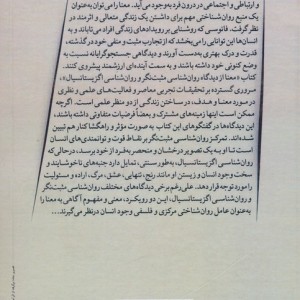 و ارتباطی و اجتماعی در درون فرد به‌وجود می‌آید. معنا را می‌توان به‌عنوان
یک منبع روان‌شناختی مهم برای داشتن یک زندگی متعالی و اثرمند در
نظر گرفت. فانوسی که روشنایی بر رویدادهای زندگی افراد می‌تاباند و به
انسان‌ها این توانایی را می‌بخشد که از تجارب مثبت و منفی خود در گذشته،
قدرت و درک بهتری به‌دست آورند و دیدگاهی جستجوگرانه نسبت به
وضع کنونی خود داشته باشند و به سمت آینده‌ای ارزشمند پیشروی کنند.
کتاب «معنا از دیدگاه روان‌شناسی مثبت‌نگر و روان‌شناسی اگزیستانسیال»،
مروری گسترده بر تحقیقات تجربی معاصر و فعالیت‌های علمی و نظری
در مورد معنا و هدف، در ساختن زندگی از دو منظر علمی است. اگرچه
ممکن است این‌ها زمینه‌های مشترک و بعضاً فرضیات متفاوتی داشته باشند،
این دیدگاه‌ها در گفتگوهای این کتاب به صورت مؤثر و راهگشا کنار هم تبیین
شده‌اند. تمرکز روان‌شناسی مثبت‌نگر بر نقاط قوت و توانمندی‌های انسان
است تا او به یک تصویر درخشان و منحصر به‌فرد از خود برسد، درحالی‌که
روان‌شناسی اگزیستانسیال، به‌طور سنتی، تمایل دارد جنبه‌های ناخوشایند و
سخت وجود انسان و زیستن او مانند رنج، تنهایی، عشق، مرگ، اراده و مسئولیت
را مورد توجه قرار دهد. علی‌رغم برخی دیدگاه‌های مختلف روان‌شناسی مثبت‌نگر
و روان‌شناسی اگزیستانسیال، این دو رویکرد، معنی و مفهوم آگاهی به معنا را
به‌عنوان عامل روان‌شناختی مرکزی و فلسفی وجود انسان درنظر می‌گیرند...